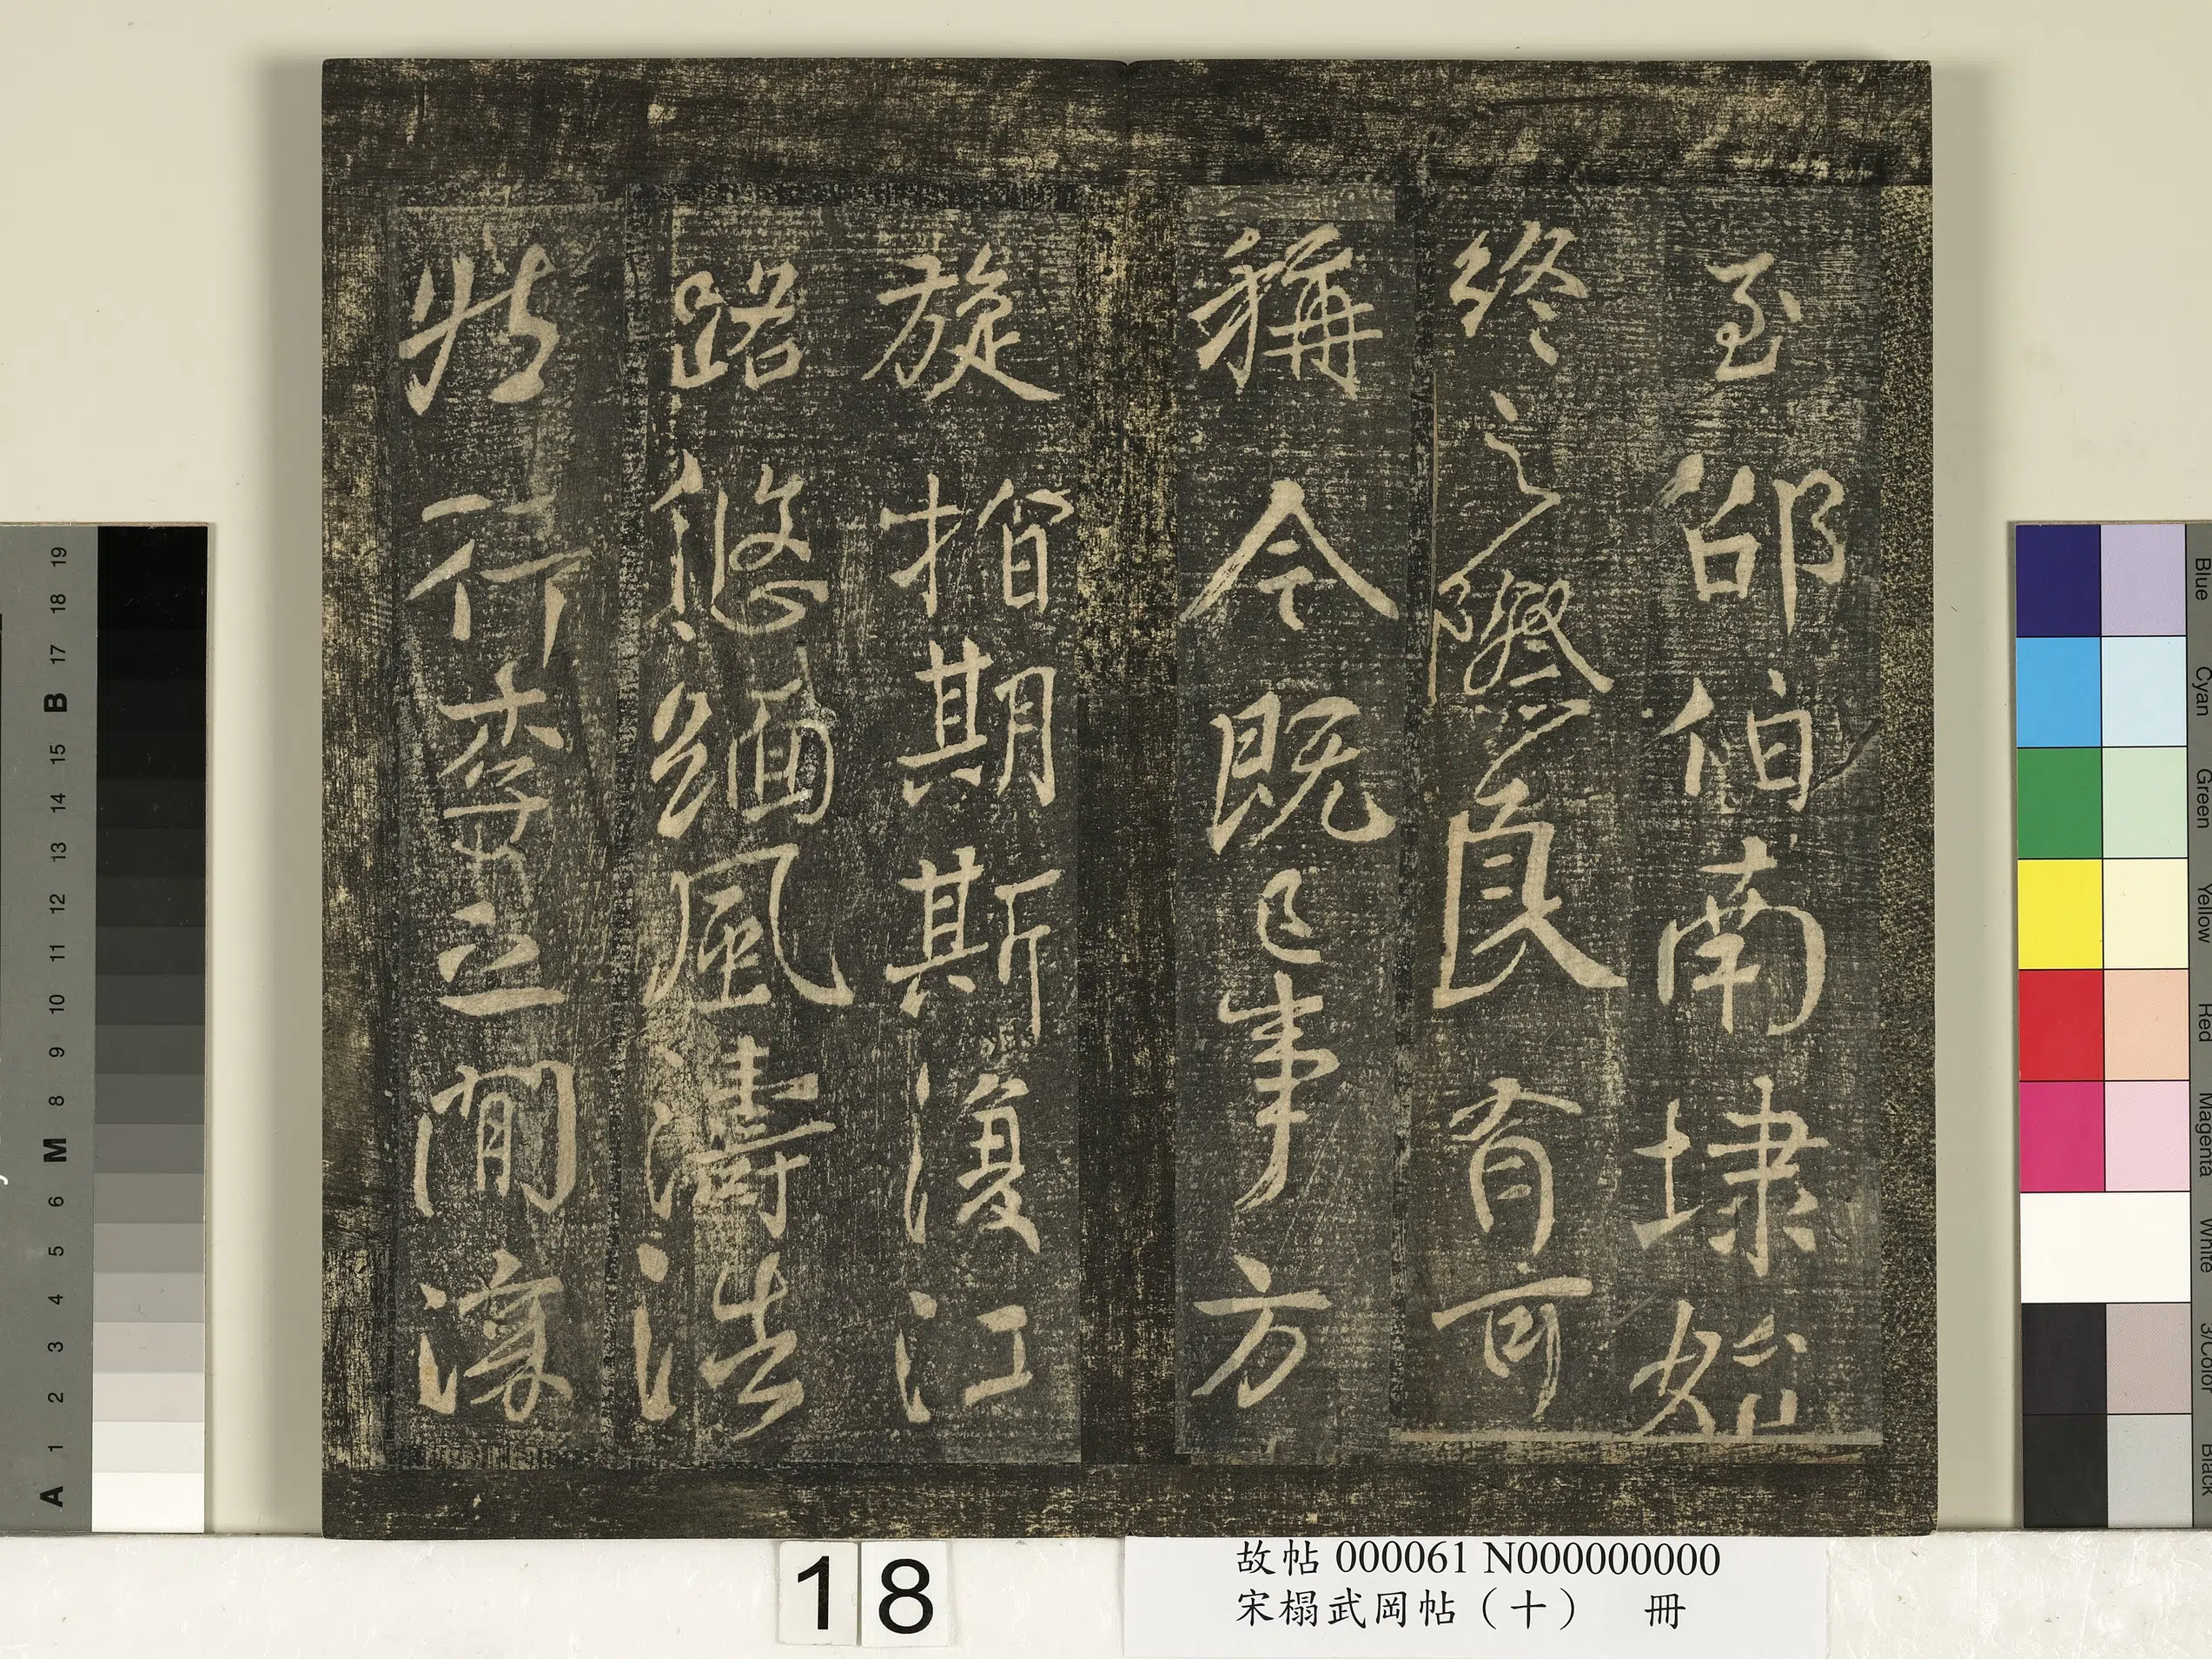 至邵伯南埭始
終之際良有可
稱今既已事方
旋指期斯復江
路悠緬風濤浩
壯行李之間深
18
故帖 000061 N000000000
宋榻武岡帖（十） 冊
19
18
17
B
15
14
13
12
11
10
9
8
M
6
5
4
3
2
1
A
Blue
Cyan
Green
Yellow
Red
Magenta
White
3/Color
Black